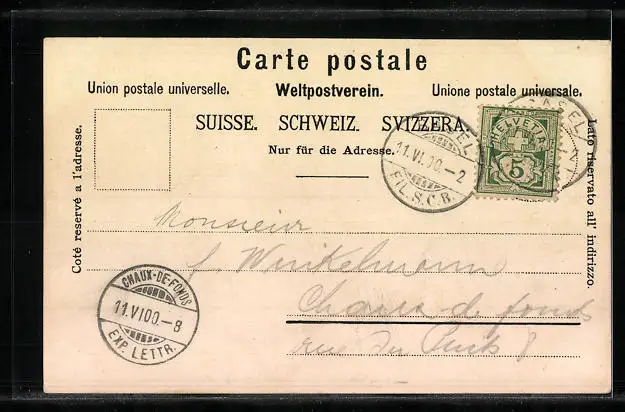 Carte postale
Union postale universelle. Weltpostverein. Unione postale universale.
SUISSE. SCHWEIZ. SVIZZERA.
Nur für die Adresse.
Coté reservé a l'adresse.
Lato riservato all' indirizzo.
BASEL
11.VI.00.-2
FIL. S.C.B.
HELVETIA
5
BASEL
Monsieur
Winkelmann
Chaux de fonds
rue du
CHAUX-DE-FONDS
11.VI.00.-8
EXP. LETTR.